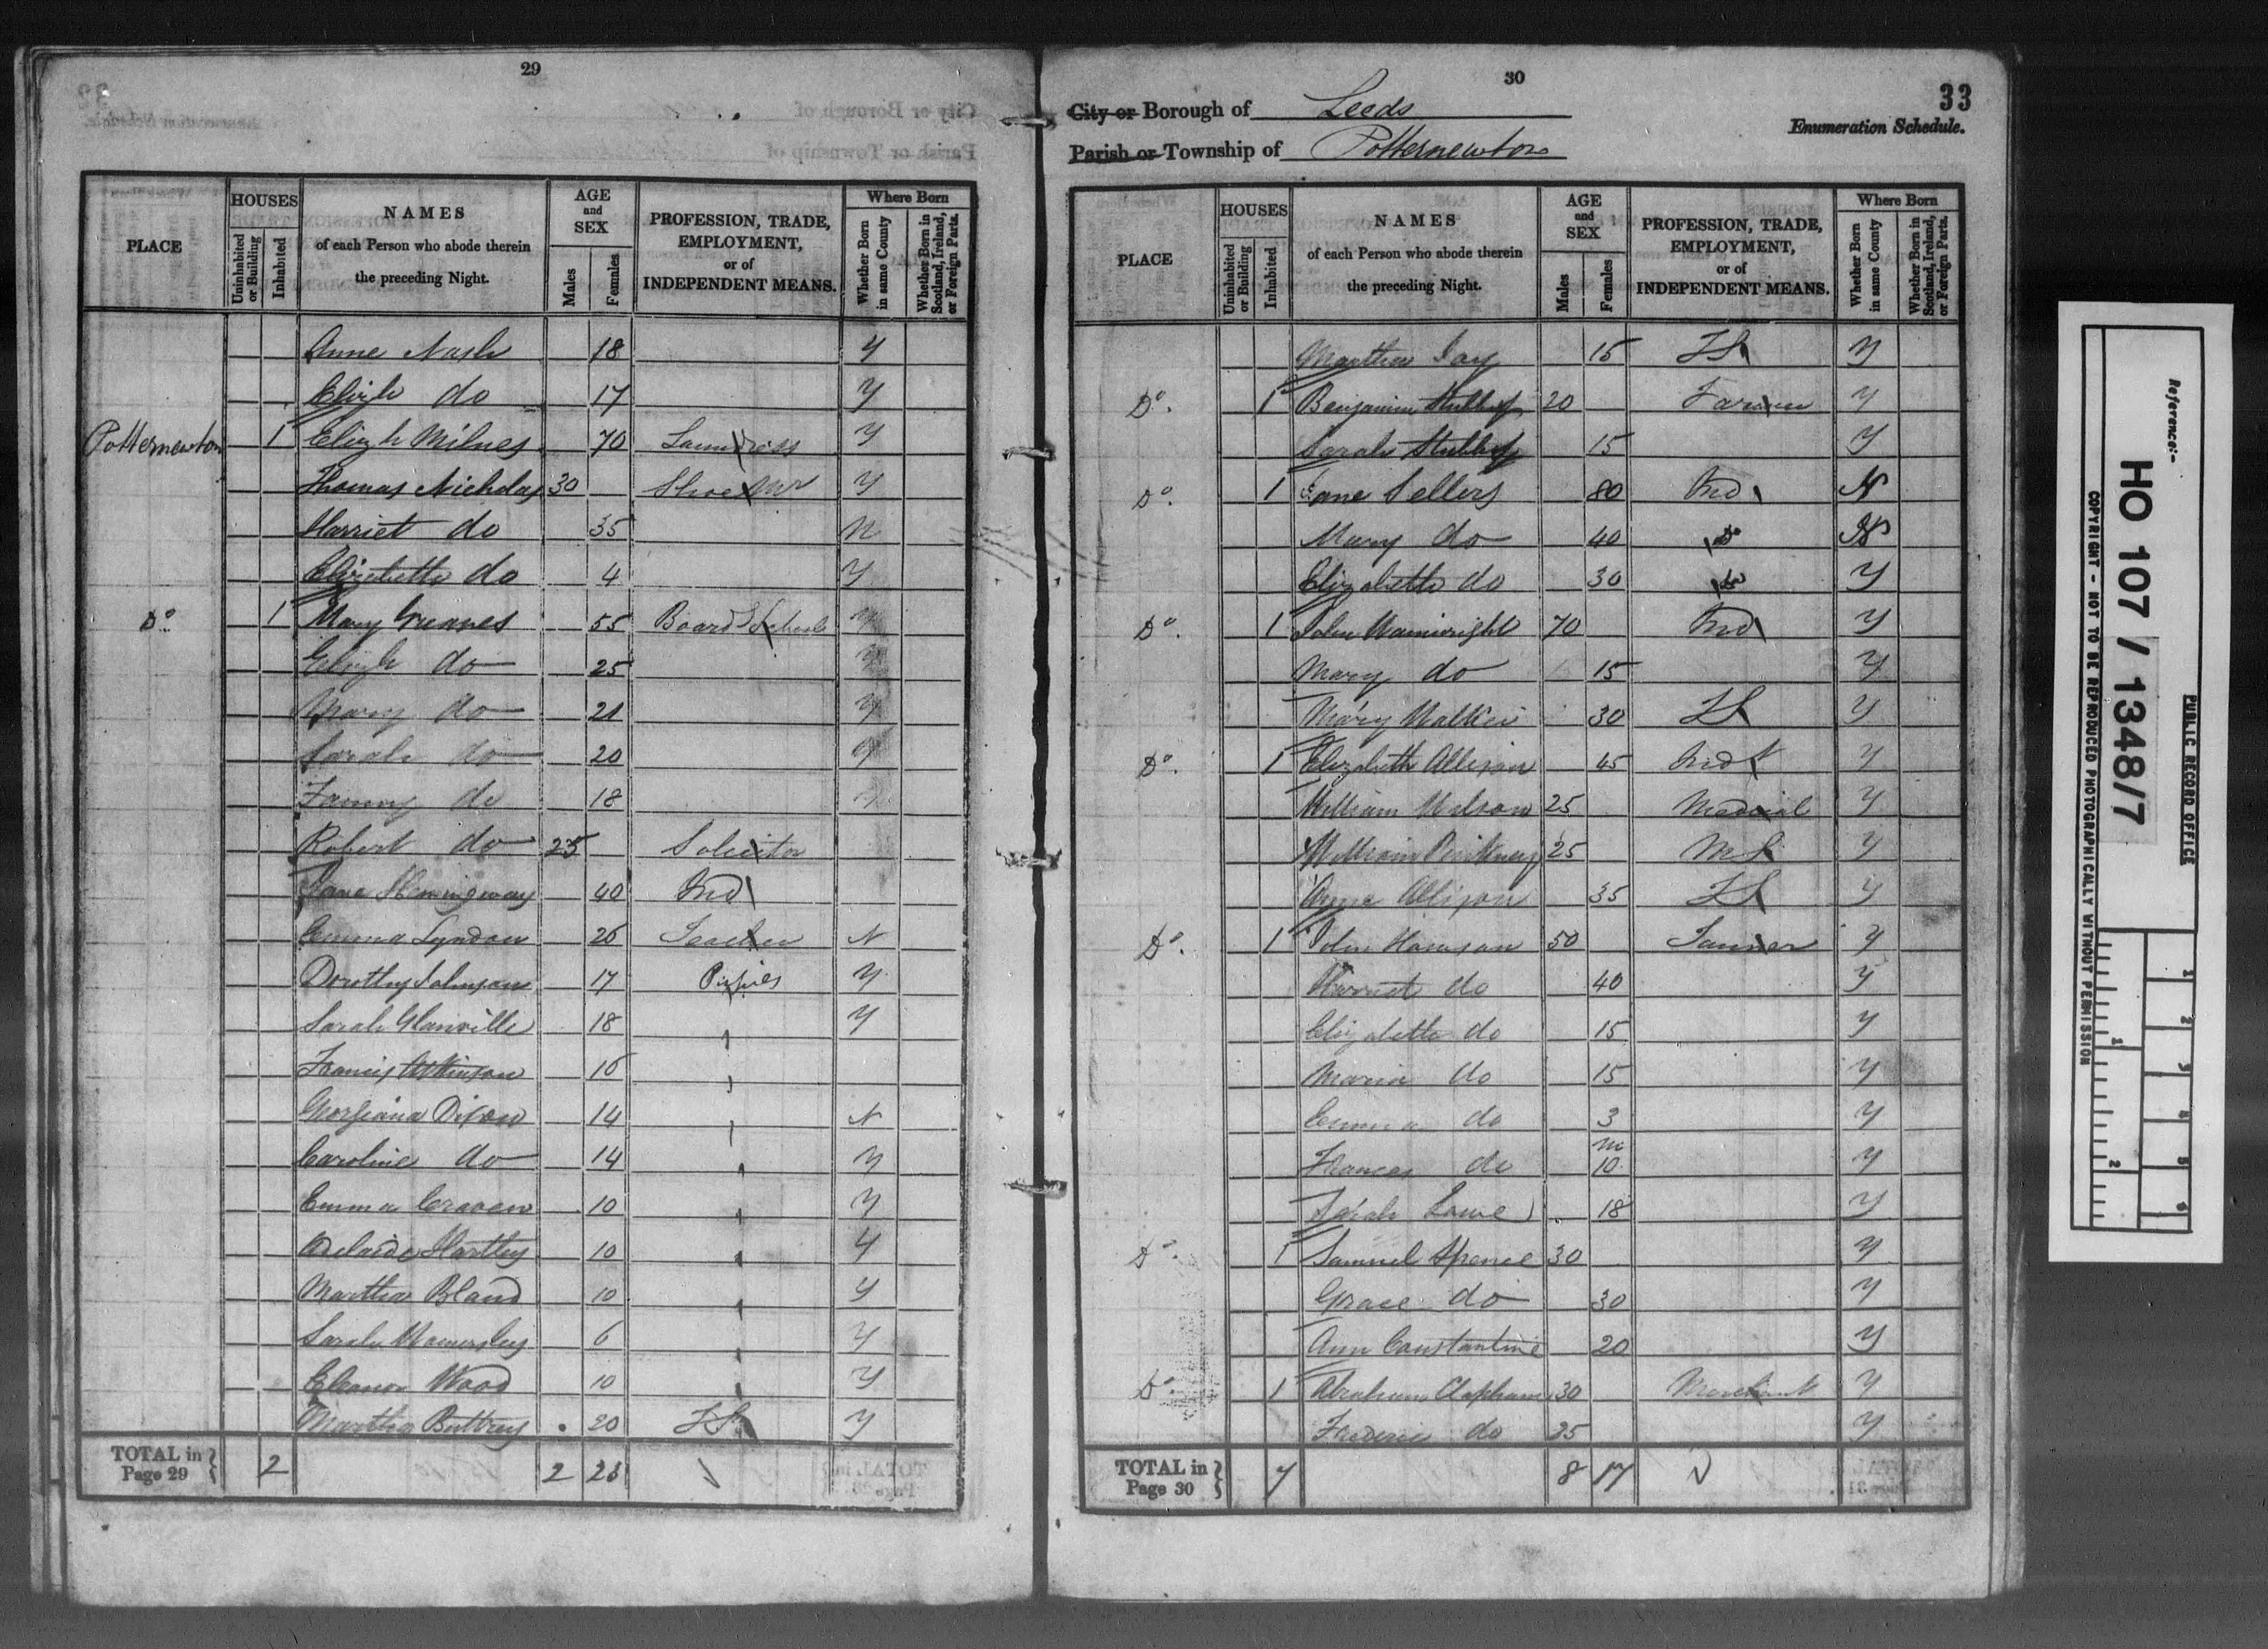 29
PLACE
HOUSES
Uninhabited or Building
Inhabited
NAMES of each Person who abode therein the preceding Night.
AGE and SEX
Males
Females
PROFESSION, TRADE, EMPLOYMENT, or of INDEPENDENT MEANS.
Where Born
Whether Born in same County
Whether Born in Scotland, Ireland, or Foreign Parts.
Anne Nash 18 Y
Elizh do 17 Y
Potternewton 1 Elizh Milnes 70 Laundress Y
Thomas Nicholas 30 Shoe Mr Y
Harriet do 35 N
Elizabeth do 4 Y
Do 1 Mary Greaves 55 Board School Y
Elizh do 25 Y
Mary do 21 Y
Sarah do 20 Y
Fanny do 18
Robert do 25 Solicitor
Jane Hemingway 40 Ind
Emma Lyndon 26 Teacher N
Dorothy Johnson 17 Pupils Y
Sarah Glanville 18 Y
Francis Atkinson 16
Georgiana Dixon 14 N
Caroline do 14 Y
Emma Craven 10 Y
Adelaide Hartley 10 Y
Martha Bland 10 Y
Sarah 6 Y
Eleanor Wood 10 Y
Martha Buttrey 20 FS Y
TOTAL in Page 29 2 2 23
30
33
City or Borough of Leeds
Enumeration Schedule.
Parish or Township of Potternewton
PLACE
HOUSES
Uninhabited or Building
Inhabited
NAMES of each Person who abode therein the preceding Night.
AGE and SEX
Males
Females
PROFESSION, TRADE, EMPLOYMENT, or of INDEPENDENT MEANS.
Where Born
Whether Born in same County
Whether Born in Scotland, Ireland, or Foreign Parts.
Martha Jay 15 FS Y
Do. 1 Benjamin Stubbs 20 Farmer Y
Sarah Stubbs 15 Y
Do. 1 Jane Sellers 80 Ind N
Mary do 40 do N
Elizabeth do 30 do Y
Do. 1 John Wainwright 70 Ind Y
Mary do 15 Y
Mary Walker 30 FS Y
Do. 1 Elizabeth Allison 45 Ind Y
William 25 Y
William Pinkney 25 MS Y
Anne Allison 35 FS Y
Do. 1 John Harrison 50 Tanner Y
Harriet do 40 Y
Elizabeth do 15 Y
Maria do 15 Y
Emma do 3 Y
Frances do m 10 Y
Sarah Lowe 18 Y
Do. 1 Samuel Spence 30 Y
Grace do 30 Y
Ann Constantine 20 Y
Do. 1 Abraham Clapham 30 Merchant Y
Frederic do 35 Y
TOTAL in Page 30 7 8 17
Reference:-
HO 107 / 1348/7
PUBLIC RECORD OFFICE
COPYRIGHT - NOT TO BE REPRODUCED PHOTOGRAPHICALLY WITHOUT PERMISSION
1 2 3 4 5 6
1 2